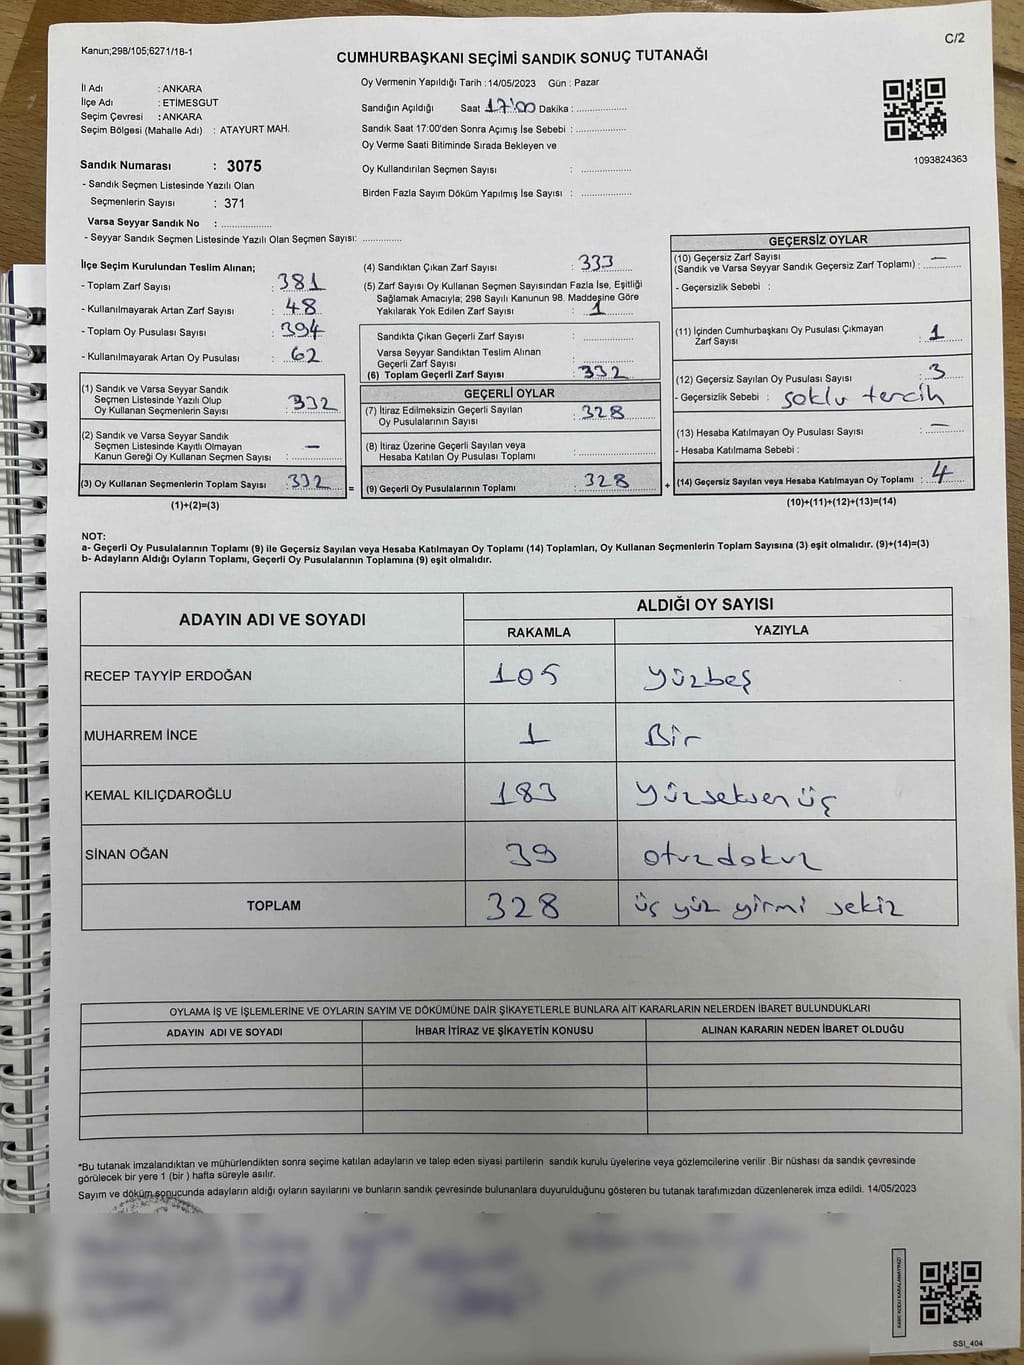 Kanun;298/105;6271/18-1
C/2
CUMHURBAŞKANI SEÇİMİ SANDIK SONUÇ TUTANAĞI
İl Adı : ANKARA
İlçe Adı : ETİMESGUT
Seçim Çevresi : ANKARA
Seçim Bölgesi (Mahalle Adı) : ATAYURT MAH.
Oy Vermenin Yapıldığı Tarih :14/05/2023 Gün : Pazar
Sandığın Açıldığı Saat 17:00 Dakika : ....................
Sandık Saat 17:00'den Sonra Açımış İse Sebebi : ....................
Oy Verme Saati Bitiminde Sırada Bekleyen ve
Oy Kullandırılan Seçmen Sayısı : ....................
Birden Fazla Sayım Döküm Yapılmış İse Sayısı : ....................
1093824363
Sandık Numarası : 3075
- Sandık Seçmen Listesinde Yazılı Olan
Seçmenlerin Sayısı : 371
Varsa Seyyar Sandık No : ....................
- Seyyar Sandık Seçmen Listesinde Yazılı Olan Seçmen Sayısı: ................
İlçe Seçim Kurulundan Teslim Alınan;
- Toplam Zarf Sayısı : 381
- Kullanılmayarak Artan Zarf Sayısı : 48
- Toplam Oy Pusulası Sayısı : 394
- Kullanılmayarak Artan Oy Pusulası : 62
(1) Sandık ve Varsa Seyyar Sandık
Seçmen Listesinde Yazılı Olup
Oy Kullanan Seçmenlerin Sayısı : 332
(2) Sandık ve Varsa Seyyar Sandık
Seçmen Listesinde Kayıtlı Olmayan
Kanun Gereği Oy Kullanan Seçmen Sayısı : —
(3) Oy Kullanan Seçmenlerin Toplam Sayısı : 332 =
(1)+(2)=(3)
(4) Sandıktan Çıkan Zarf Sayısı : 333
(5) Zarf Sayısı Oy Kullanan Seçmen Sayısından Fazla İse, Eşitliği
Sağlamak Amacıyla; 298 Sayılı Kanunun 98. Maddesine Göre
Yakılarak Yok Edilen Zarf Sayısı : 1
Sandıkta Çıkan Geçerli Zarf Sayısı : ....................
Varsa Seyyar Sandıktan Teslim Alınan
Geçerli Zarf Sayısı : ....................
(6) Toplam Geçerli Zarf Sayısı : 332
GEÇERLİ OYLAR
(7) İtiraz Edilmeksizin Geçerli Sayılan
Oy Pusulalarının Sayısı : 328
(8) İtiraz Üzerine Geçerli Sayılan veya
Hesaba Katılan Oy Pusulası Toplamı : ....................
(9) Geçerli Oy Pusulalarının Toplamı : 328 +
GEÇERSİZ OYLAR
(10) Geçersiz Zarf Sayısı
(Sandık ve Varsa Seyyar Sandık Geçersiz Zarf Toplamı) : —
- Geçersizlik Sebebi :
(11) İçinden Cumhurbaşkanı Oy Pusulası Çıkmayan
Zarf Sayısı : 1
(12) Geçersiz Sayılan Oy Pusulası Sayısı : 3
- Geçersizlik Sebebi : Çoklu tercih
(13) Hesaba Katılmayan Oy Pusulası Sayısı : —
- Hesaba Katılmama Sebebi :
(14) Geçersiz Sayılan veya Hesaba Katılmayan Oy Toplamı : 4
(10)+(11)+(12)+(13)=(14)
NOT:
a- Geçerli Oy Pusulalarının Toplamı (9) ile Geçersiz Sayılan veya Hesaba Katılmayan Oy Toplamı (14) Toplamları, Oy Kullanan Seçmenlerin Toplam Sayısına (3) eşit olmalıdır. (9)+(14)=(3)
b- Adayların Aldığı Oyların Toplamı, Geçerli Oy Pusulalarının Toplamına (9) eşit olmalıdır.
ADAYIN ADI VE SOYADI ALDIĞI OY SAYISI
RAKAMLA YAZIYLA
RECEP TAYYİP ERDOĞAN 105 Yüzbeş
MUHARREM İNCE 1 Bir
KEMAL KILIÇDAROĞLU 183 Yüzseksen üç
SİNAN OĞAN 39 otuzdokuz
TOPLAM 328 üç yüz yirmi sekiz
OYLAMA İŞ VE İŞLEMLERİNE VE OYLARIN SAYIM VE DÖKÜMÜNE DAİR ŞİKAYETLERLE BUNLARA AİT KARARLARIN NELERDEN İBARET BULUNDUKLARI
ADAYIN ADI VE SOYADI İHBAR İTİRAZ VE ŞİKAYETİN KONUSU ALINAN KARARIN NEDEN İBARET OLDUĞU
*Bu tutanak imzalandıktan ve mühürlendikten sonra seçime katılan adayların ve talep eden siyasi partilerin sandık kurulu üyelerine veya gözlemcilerine verilir .Bir nüshası da sandık çevresinde
görülecek bir yere 1 (bir ) hafta süreyle asılır.
Sayım ve döküm sonucunda adayların aldığı oyların sayılarını ve bunların sandık çevresinde bulunanlara duyurulduğunu gösteren bu tutanak tarafımızdan düzenlenerek imza edildi. 14/05/2023
KARE KODU KARALAMAYINIZ!
SSI_404